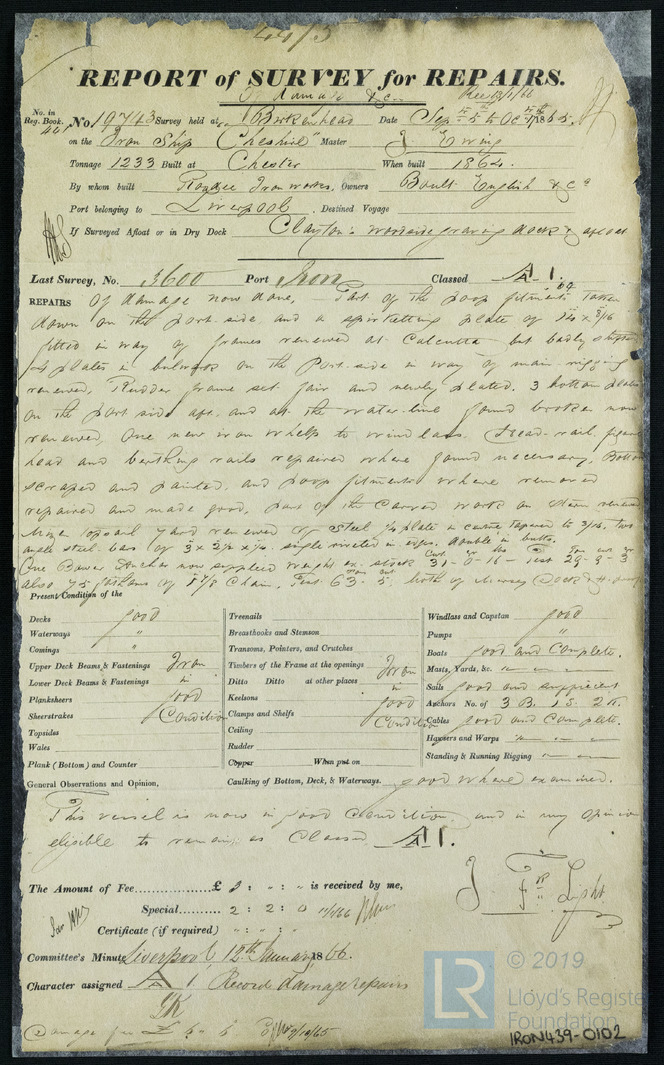 44/5
REPORT of SURVEY for REPAIRS.
of damage &c. Rec 13/1/66
No. in Reg. Book. 401 No 19743 Survey held at Birkenhead Date Sep 5th to Oct 11th 1865.
on the Iron Ship "Cheshire" Master J Ewing
Tonnage 1233 Built at Chester When built 1864.
By whom built Roodee Iron works, Owners Boult English & Co
Port belonging to Liverpool. Destined Voyage
If Surveyed Afloat or in Dry Dock Clayton's Woodside graving dock & afloat
Last Survey, No. 3600 Port Iron Classed A 1. 64
REPAIRS Of damage now done, Part of the poop fitments taken
down on the port side, and a spirketting plate of 14 x 8/16
fitted in way of frames renewed at Calcutta but badly
plates in bulwark on the Port side in way of main rigging
renewed, Rudder frame set fair and newly plated. 3 bottom plates
on the port side aft, and at the water line found broken now
renewed, One new iron whelp to windlass. Head rail, figure
head and berthing rails repaired where found necessary, Bottom
scraped and painted, and poop fitments where removed
repaired and made good, part of the carved work on Stern renewed
topsail yard renewed of Steel plate in centre tapered to 3/16, two
angle steel bars of 3 x single riveted in edges. double in butts.
One Bower Anchor now supplied weight ex. stock 31-0-16- Test 29-9-3
also 75 fathoms of 1 7/8 Chain, Test 63-5 both of Mersey Dock & H.
Present Condition of the
Decks good
Waterways "
Comings "
Upper Deck Beams & Fastenings Iron
Lower Deck Beams & Fastenings in
Planksheers good
Sheerstrakes Condition
Topsides
Wales
Plank (Bottom) and Counter
Treenails
Breasthooks and Stemson
Transoms, Pointers, and Crutches
Timbers of the Frame at the openings Iron
Ditto Ditto at other places in
Keelsons good
Clamps and Shelfs Condition
Ceiling
Rudder
Copper When put on
Windlass and Capstan good
Pumps "
Boats good and Complete.
Masts, Yards, &c. " — —
Sails good and sufficient
Anchors No. of 3 B. 1 S. 2 K.
Cables good and Complete.
Hawsers and Warps " — —
Standing & Running Rigging — —
General Observations and Opinion, Caulking of Bottom, Deck, & Waterways. good where examined.
This vessel is now in good Condition, and in my Opinion
eligible to remain as Classed A 1.
The Amount of Fee............... £ : " : " is received by me,
Special........... 2 : 2 : 0 11/1/66
Certificate (if required) " : " : "
J F Light
Committee's Minute Liverpool, 12th January 1866.
Character assigned A 1 Record damage repairs
Damage fee £
© 2019
LR
Lloyd's Register
Foundation
IRON439-0102